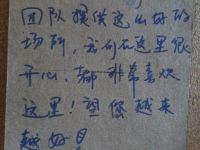 团队提供这么好的
场所，我们在这里很
开心，都非常喜欢
这里！望您越来
越好！